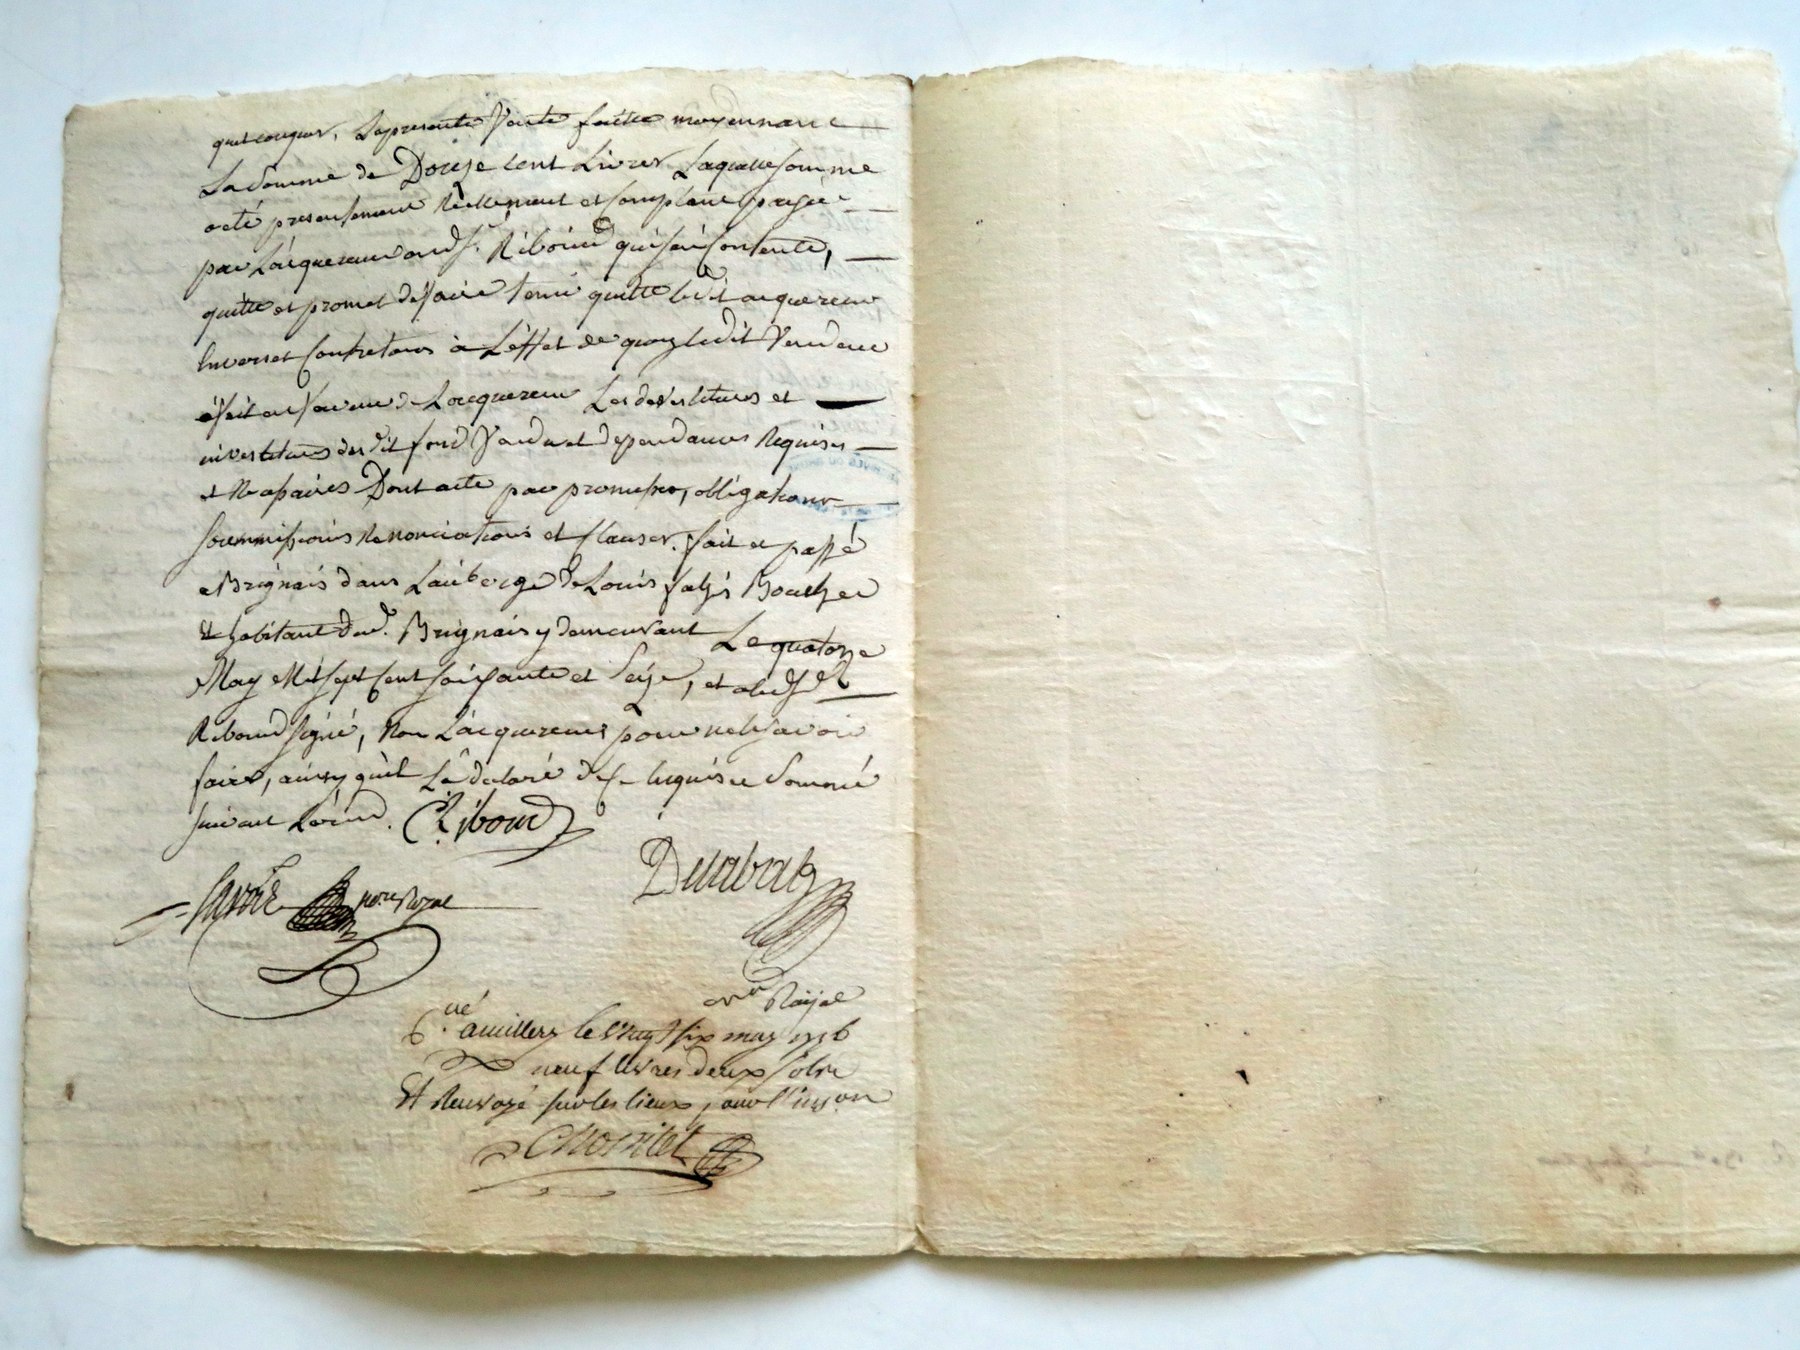 quelconques, La presente Vente faitte moyennant
La Somme de Douze Cent Livres Laquelle Somme
a été presentement Reellement et Comptant payée
par L'acquereur aud. Sr. Riboud qui s'en Contente,
quitte et promet de faire tenir quitte ledit acquereur
Envers et Contre tous à L'effet de quoy ledit Vendeur
a fait en faveur de L'acquereur Les devestitures et
investitures des dit fond Vendu et dependances Requises
et Necessaires Dont acte par promesses, obligations
soummissions Renonciations et Clauses. fait et passé
a Brignais dans L'auberge de Louis Boucher
et habitant dud. Brignais y demeurant Le quatorze
May Mil Sept Cent Soixante et Seize, et a led. Sr.
Riboud signé, Non L'acquereur pour ne le savoir
faire, ainsy qu'il L'a declaré de ce Enquis et Sommé
suivant L'ord. C. Riboud
Delabat
not. Royal
Royal
C.llé a Millery le vingt six may 1776
neuf livres deux sols
Et Renvoyé sur les lieux pour l'insson